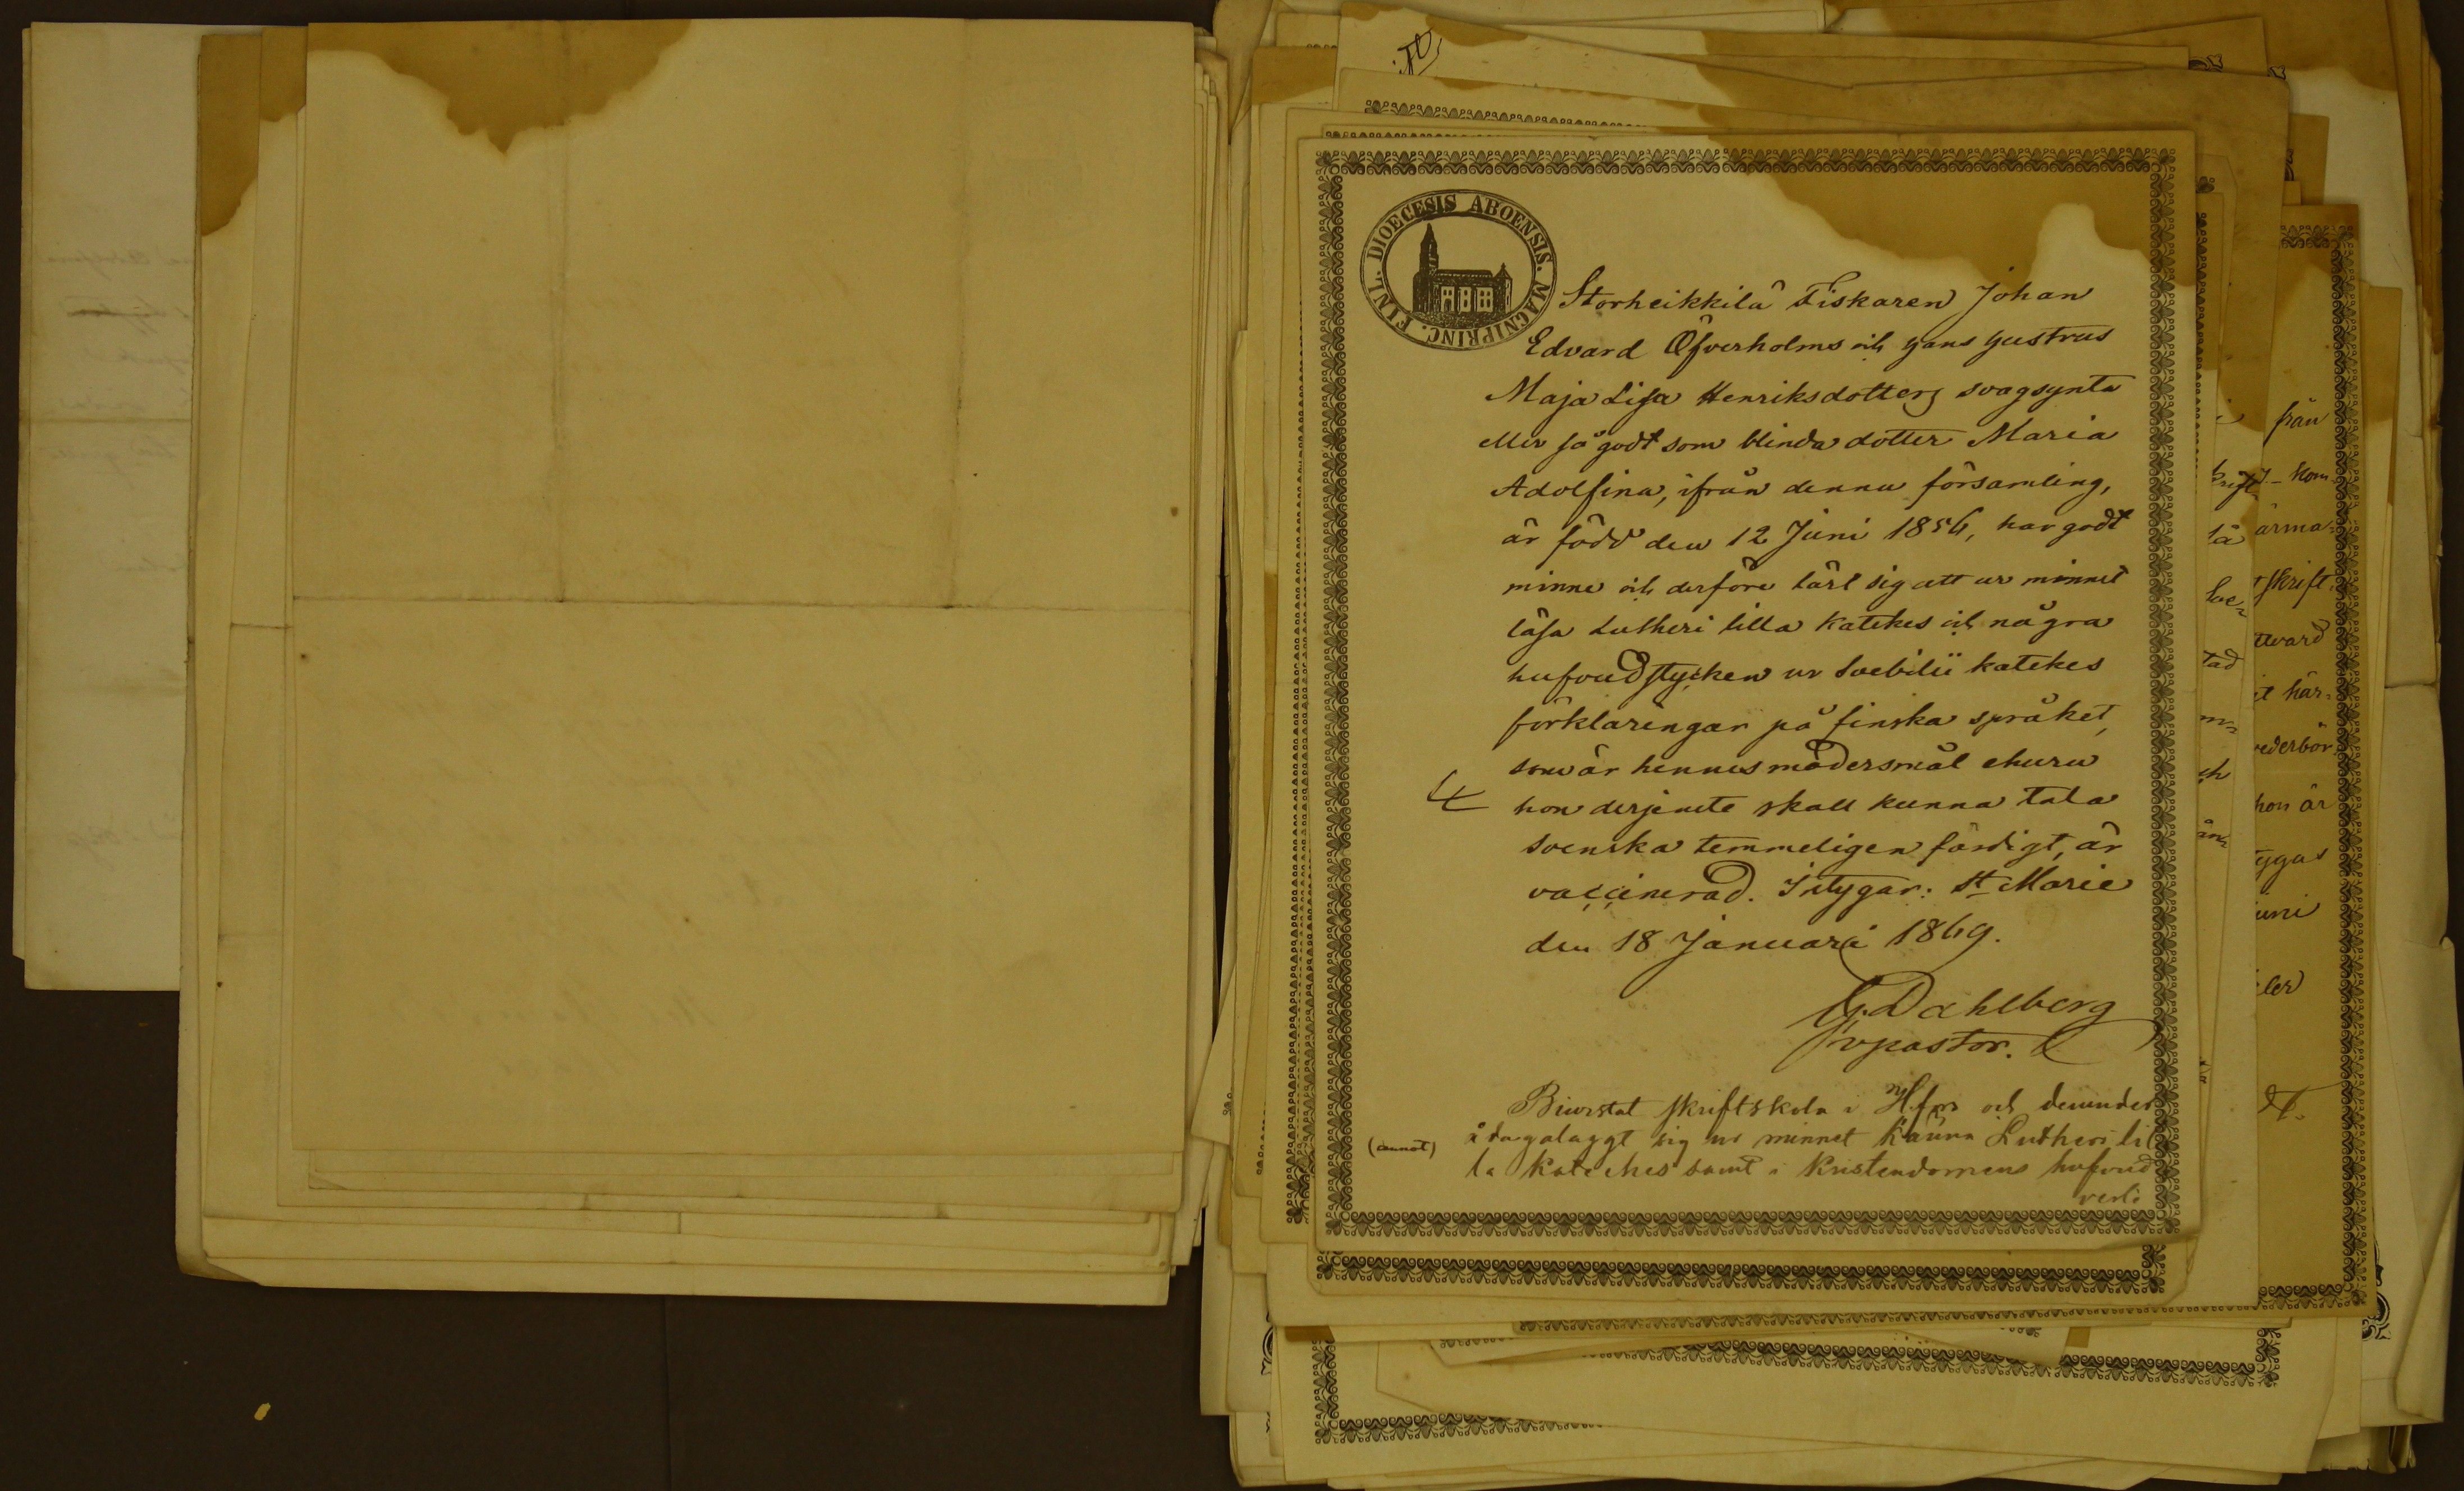 FINL. DIOECESIS ABOENSIS. MAGNIPRINC.
Storheikkilä Fiskaren Johan
Edvard Öfverholms och hans hustrus
Maja Lisa Henriksdotters svagsynta
eller så godt som blinda dotter Maria
Adolfina, ifrån denna församling,
är född den 12 Juni 1854, har godt
minne och derföre lärt sig att ur minnet
läsa Lutheri lilla Katekes och några
hufvudstycken ur Svebilii katekes
förklaringar på finska språket,
som är hennes modersmål ehuru
hon derjemte skall kunna tala
svenska temmeligen färdigt, är
vaccinerad. Intygar: St Marie
den 18 Januari 1869.
G. Dahlberg
vpastor.
Bivistat skriftskola i H:fors och derunder
(annot) ådagalaggt sig ur minnet känna Lutheri lil
la Kateches samt i Kristendomens hufvud
från
Kom
ärma=
skrift
ttvard
it här=
vederbör
hon är
ygas
uni
ler
tad